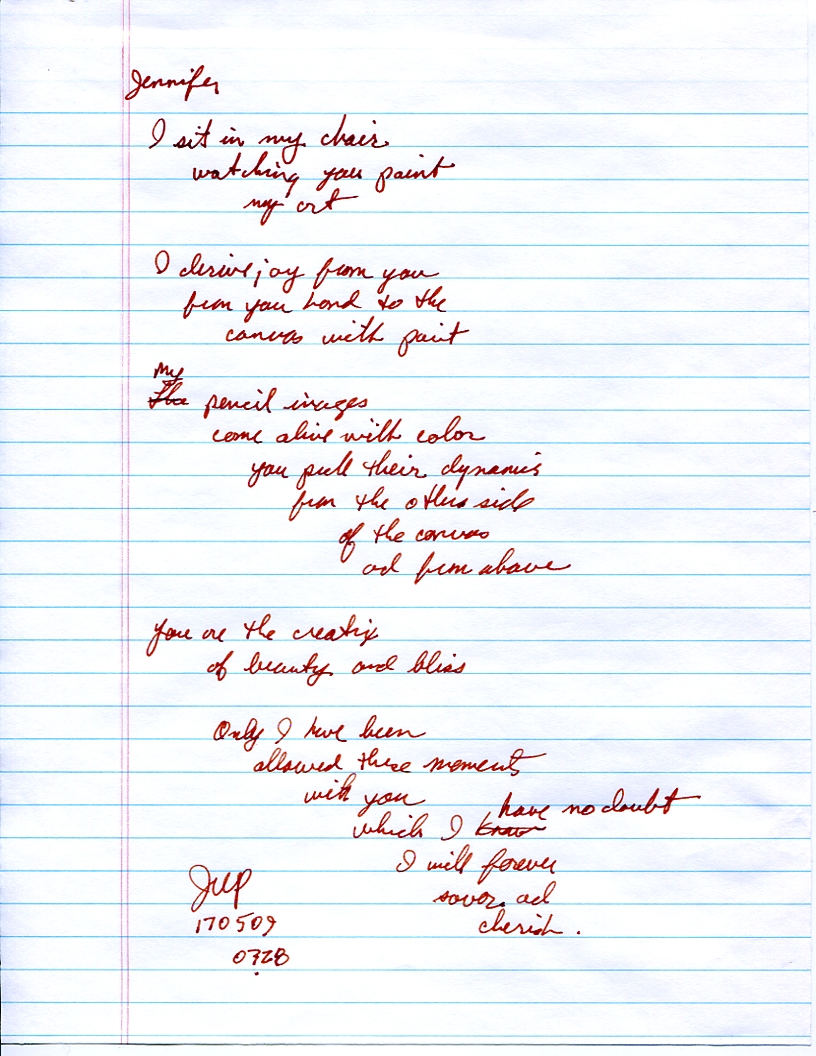 Jennifer
I sit in my chair
watching you paint
my art
I derive joy from you
from you hand to the
canvas with paint
My
The pencil images
come alive with color
you pull their dynamis
from the other side
of the canvas
ad from above
You are the creatix
of beauty and bliss
Only I have been
allowed these moments
with you
have no doubt
which I know
I will forever
savor ad
cherish.
JWP
170509
0728